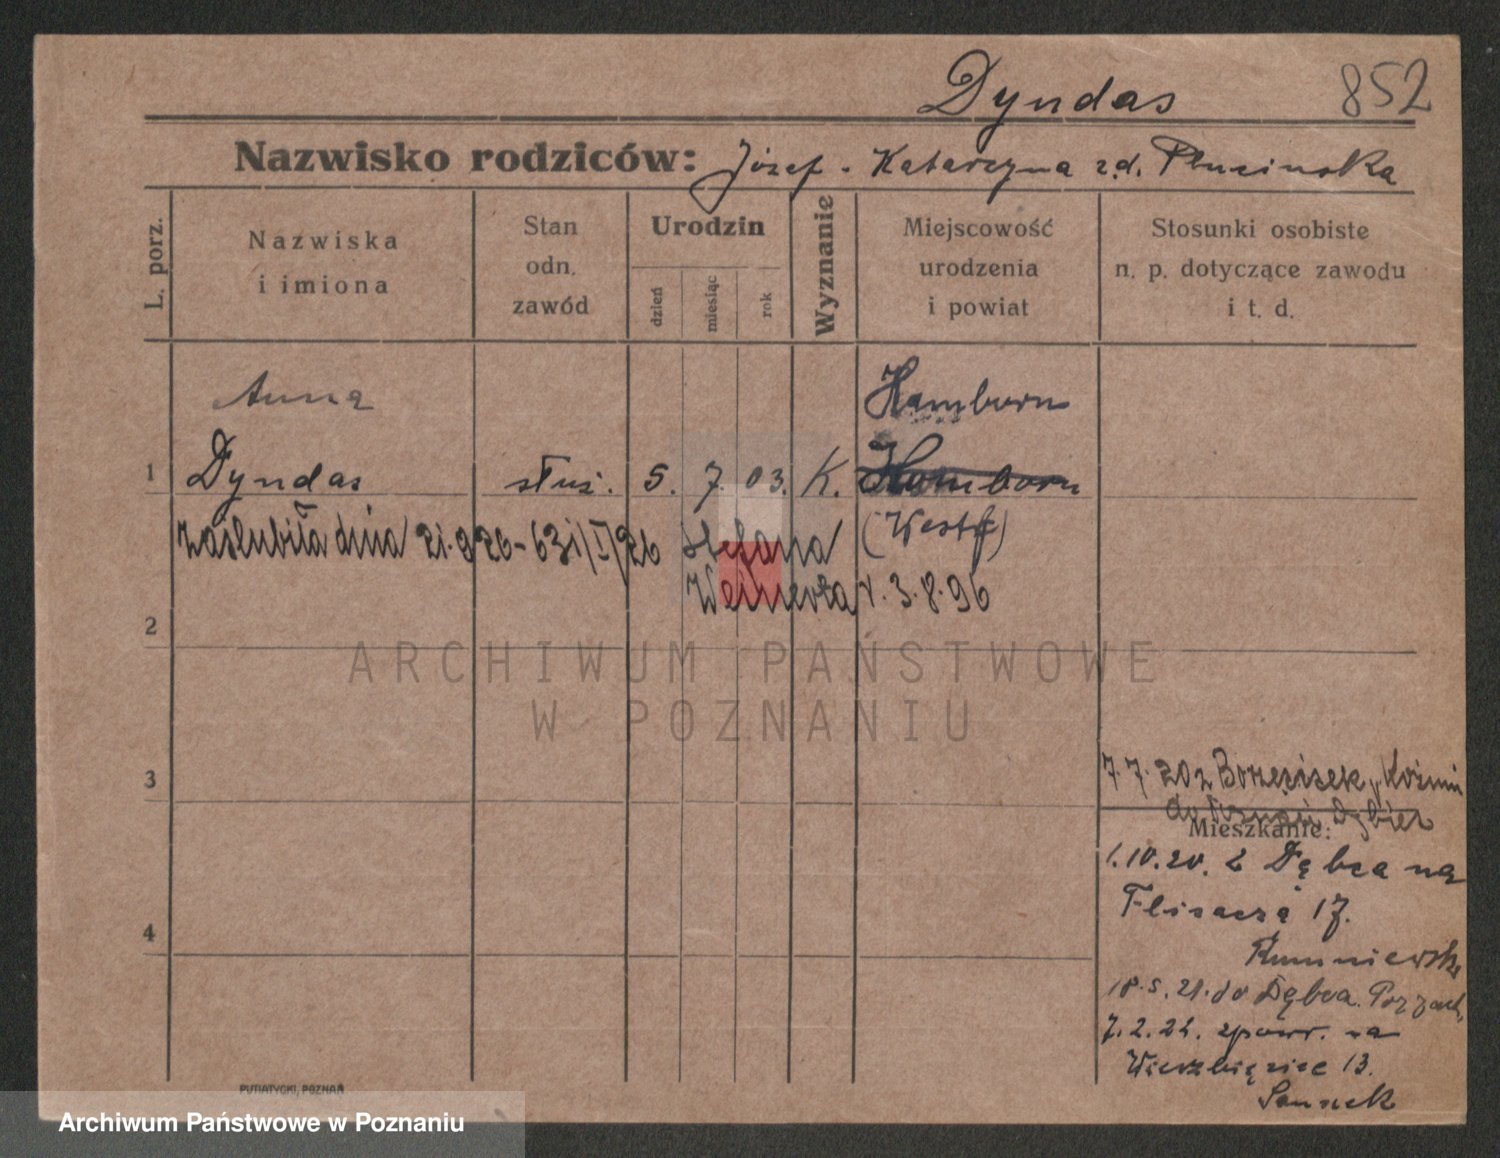 Dyndas 852
Nazwisko rodziców: Józef - Katarzyna z.d.
L. porz.
Nazwiska i imiona
Stan odn. zawód
Urodzin
dzień
miesiąc
rok
Wyznanie
Miejscowość urodzenia i powiat
Stosunki osobiste n. p. dotyczące zawodu i t. d.
Anna
Hamborn
1 Dyndas służ. 5. 7. 03. K. Hamborn
(Westf)
zaślubiła dnia 21.9.26 - 631/I/26 Stefana
r. 3.8.96
2
ARCHIWUM PAŃSTWOWE
W POZNANIU
3
7.7.20 z
do
Mieszkanie:
1.10.20. z Dębca na
17.
4
18.5.21. do Dębca.
7.2.22. zpowr. na
13.
PUTIATYCKI, POZNAŃ
Archiwum Państwowe w Poznaniu